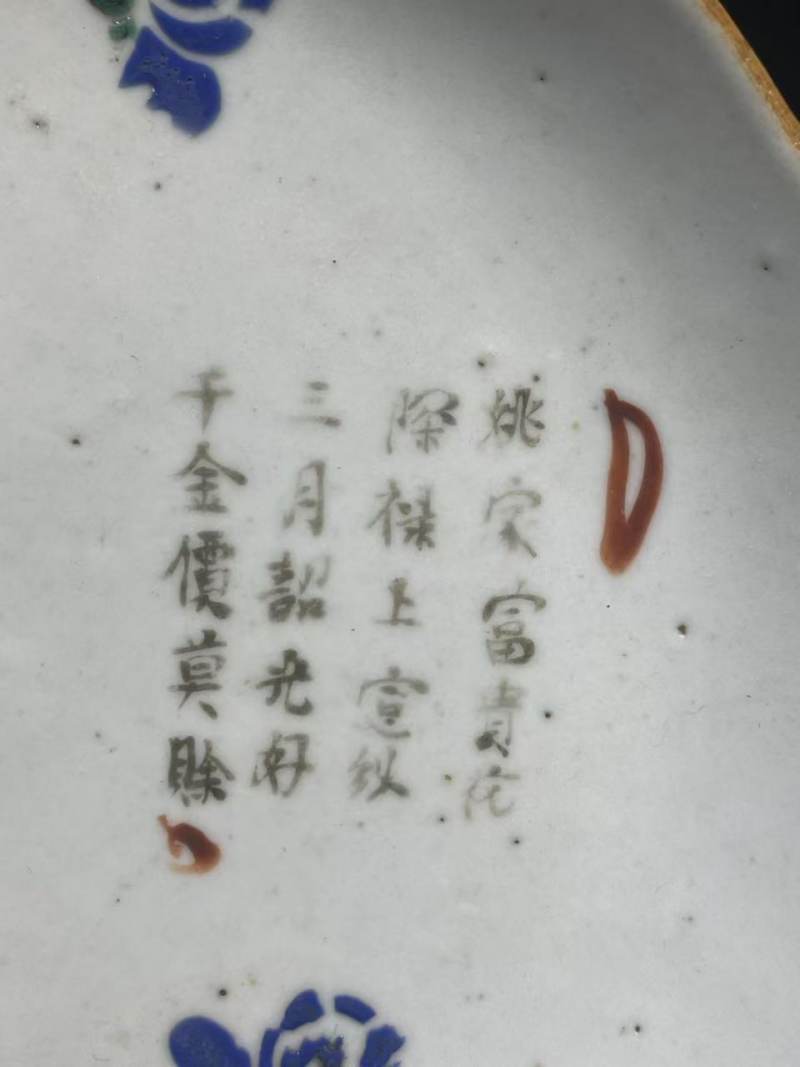 姚家富貴花
深祿上宣紗
三月韶光好
千金價莫賒